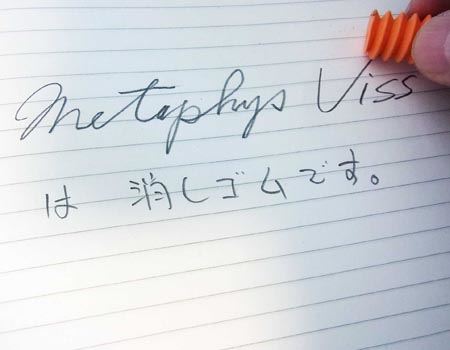 Metaphys Viss
は 消しゴムです。